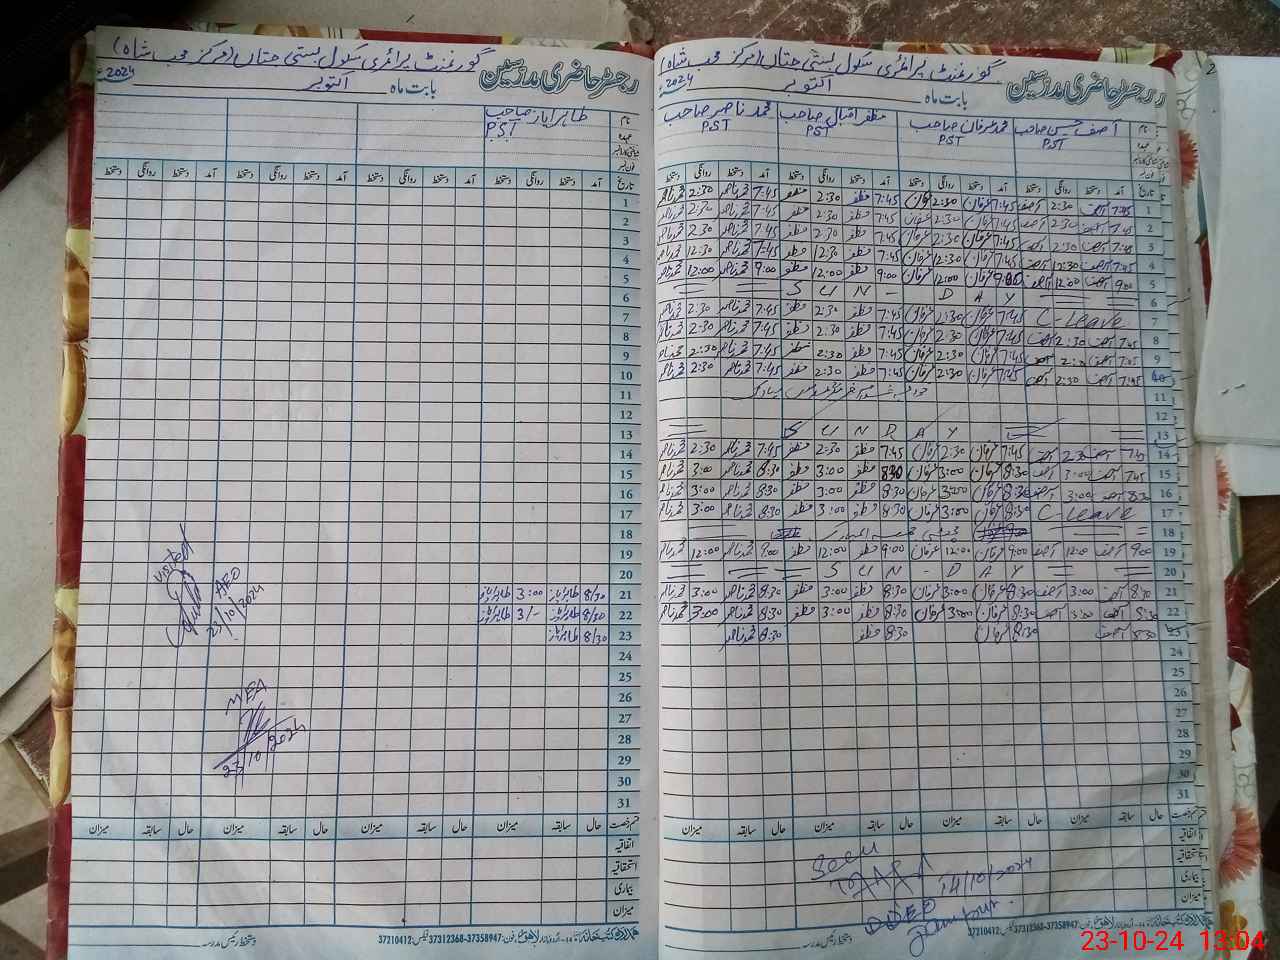 رجسٹر حاضری مدرسین گورنمنٹ پرائمری سکول بستی جتاں (مرکز محب شاہ)
بابت ماہ اکتوبر 2024ء
نام آصف حسین صاحب محمد عرفان صاحب مظفر اقبال صاحب محمد ناصر صاحب
عہدہ PST PST PST PST
تاریخ آمد دستخط روانگی دستخط آمد دستخط روانگی دستخط آمد دستخط روانگی دستخط آمد دستخط روانگی دستخط
1 7:45 آصف 2:30 آصف 7:45 عرفان 2:30 عرفان 7:45 مظفر 2:30 مظفر 7:45 محمد ناصر 2:30 محمد ناصر
2 7:45 آصف 2:30 آصف 7:45 عرفان 2:30 عرفان 7:45 مظفر 2:30 مظفر 7:45 محمد ناصر 2:30 محمد ناصر
3 7:45 آصف 2:30 آصف 7:45 عرفان 2:30 عرفان 7:45 مظفر 2:30 مظفر 7:45 محمد ناصر 2:30 محمد ناصر
4 7:45 آصف 12:30 آصف 7:45 عرفان 12:30 عرفان 7:45 مظفر 12:30 مظفر 7:45 محمد ناصر 12:30 محمد ناصر
5 9:00 آصف 12:00 آصف 9:00 عرفان 12:00 عرفان 9:00 مظفر 12:00 مظفر 9:00 محمد ناصر 12:00 محمد ناصر
6 SUN-DAY
7 C-Leave 7:45 عرفان 2:30 عرفان 7:45 مظفر 2:30 مظفر 7:45 محمد ناصر 2:30 محمد ناصر
8 7:45 آصف 2:30 آصف 7:45 عرفان 2:30 عرفان 7:45 مظفر 2:30 مظفر 7:45 محمد ناصر 2:30 محمد ناصر
9 7:45 آصف 2:30 آصف 7:45 عرفان 2:30 عرفان 7:45 مظفر 2:30 مظفر 7:45 محمد ناصر 2:30 محمد ناصر
10 7:45 آصف 2:30 آصف 7:45 عرفان 2:30 عرفان 7:45 مظفر 2:30 مظفر 7:45 محمد ناصر 2:30 محمد ناصر
11
12
13 SUNDAY
14 7:45 آصف 2:30 آصف 7:45 عرفان 2:30 عرفان 7:45 مظفر 2:30 مظفر 7:45 محمد ناصر 2:30 محمد ناصر
15 7:45 آصف 3:00 آصف 8:30 عرفان 3:00 عرفان 8:30 مظفر 3:00 مظفر 8:30 محمد ناصر 3:00 محمد ناصر
16 8:30 آصف 3:00 آصف 8:30 عرفان 3:00 عرفان 8:30 مظفر 3:00 مظفر 8:30 محمد ناصر 3:00 محمد ناصر
17 C-Leave 8:30 عرفان 3:00 عرفان 8:30 مظفر 3:00 مظفر 8:30 محمد ناصر 3:00 محمد ناصر
18
19 9:00 آصف 12:00 آصف 9:00 عرفان 12:00 عرفان 9:00 مظفر 12:00 مظفر 9:00 محمد ناصر 12:00 محمد ناصر
20 SUN-DAY
21 8:30 آصف 3:00 آصف 8:30 عرفان 3:00 عرفان 8:30 مظفر 3:00 مظفر 8:30 محمد ناصر 3:00 محمد ناصر
22 8:30 آصف 3:00 آصف 8:30 عرفان 3:00 عرفان 8:30 مظفر 3:00 مظفر 8:30 محمد ناصر 3:00 محمد ناصر
23 8:30 آصف 8:30 عرفان 8:30 مظفر 8:30 محمد ناصر
24
25
26
27
28
29
30
31
حال سابقہ میزان حال سابقہ میزان حال سابقہ میزان حال سابقہ میزان
اتفاقیہ
استحقاقیہ
بیماری
میزان
Seen
14/10/2024
DDEO
Jampur
37210412 37312368-37358947
رجسٹر حاضری مدرسین گورنمنٹ پرائمری سکول بستی جتاں (مرکز محب شاہ)
بابت ماہ اکتوبر 2024ء
طاہر ایاز صاحب
PST
تاریخ آمد دستخط روانگی دستخط آمد دستخط روانگی دستخط آمد دستخط روانگی دستخط آمد دستخط روانگی دستخط
1
2
3
4
5
6
7
8
9
10
11
12
13
14
15
16
17
18
19
20
21 8/30 طاہر ایاز 3:00 طاہر ایاز
22 8/30 طاہر ایاز 3/- طاہر ایاز
23 8/30 طاہر ایاز
24
25
26
27
28
29
30
31
visited
AEO
23/10/2024
MEA
23/10/2024
ختم رخصت حال سابقہ میزان حال سابقہ میزان حال سابقہ میزان حال سابقہ میزان
اتفاقیہ
استحقاقیہ
بیماری
میزان
دستخط رئیس مدرسہ
37210412 37312368-37358947
23-10-24 13:04